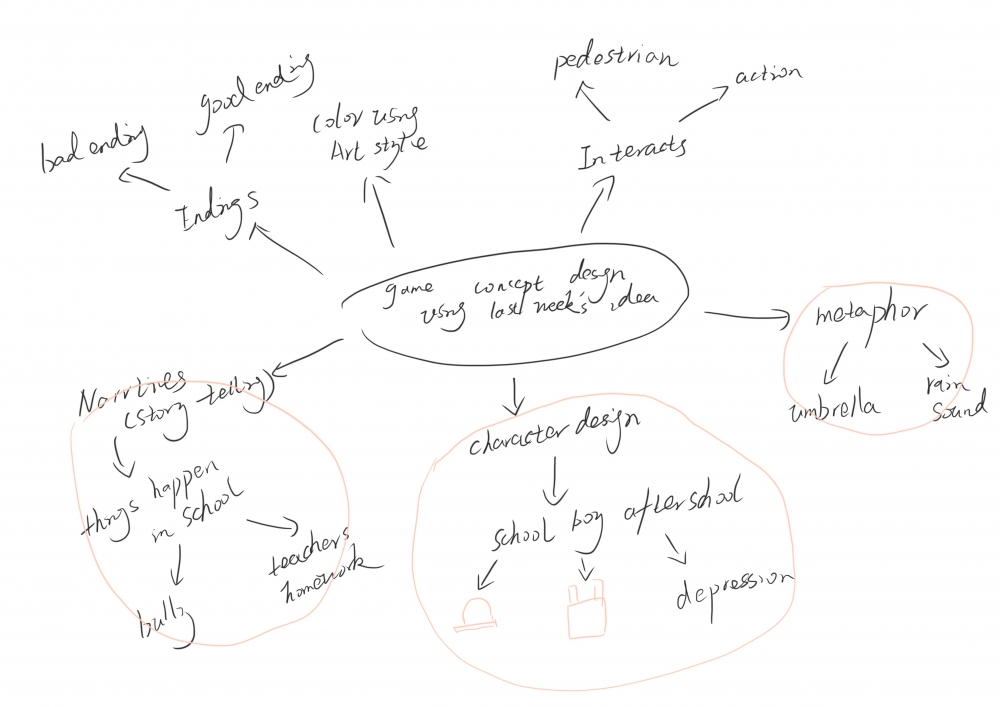 pedestrian
action
good ending
bad ending
color using
Art style
Interacts
Endings
game concept design
using last week's idea
metaphor
umbrella
rain
sound
Narrtives
(story telling)
things happen
in school
teachers
homework
bully
character design
school boy afterschool
depression